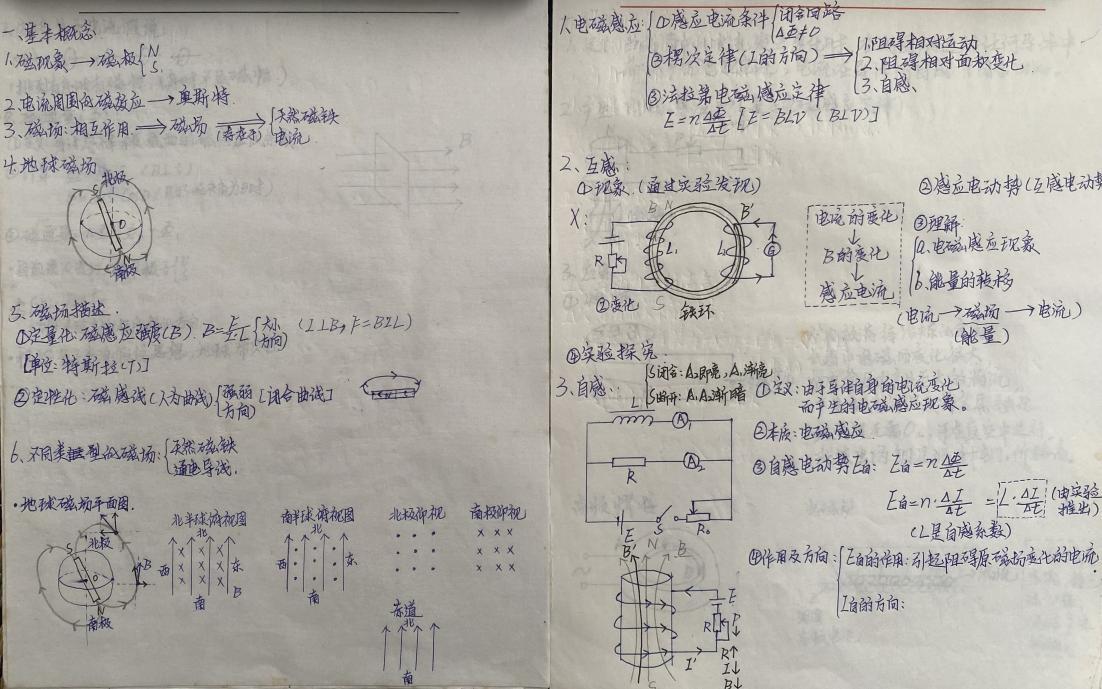 一、基本概念
1.磁现象→磁极{N
S
2.电流周围的磁效应→奥斯特.
3、磁场:相互作用⇒磁场 ⇒(存在于) {天然磁铁
电流.
4.地球磁场
北极
S
O
N
南极
5.磁场描述.
①定量化:磁感应强度(B). B=F/IL {大小
方向) (I⊥B, F=BIL)
[单位:特斯拉(T)]
②定性化:磁感线(人为曲线){强弱
方向) [闭合曲线]
6、不同类型的磁场:{天然磁铁
通电导线.
·地球磁场平面图.
北极
S
O
B
N
南极
北半球俯视图
北
西 东
南 B
南半球俯视图
北
西 东
南
北极俯视
南极仰视
赤道
北
南
1.电磁感应:{①感应电流条件{闭合回路
ΔΦ≠0
②楞次定律(I的方向)⇒{1.阻碍相对运动
2.阻碍相对面积变化
3、自感、
③法拉第电磁感应定律
E=nΔΦ/Δt [E=BLV (BLV)]
2、互感:
①现象(通过实验发现)
B N B'
R L₁ L₂ G
S
②变化
铁环
电流的变化
↓
B的变化
↓
感应电流
②感应电动势(互感电动势
③理解:
{a.电磁感应现象
b.能量的转移
(电流→磁场→电流)
(能量)
④实验探究.
3.自感:{S闭合:A₂即亮,A₁渐亮
S断开:A₁A₂渐暗
L A₁
R A₂
E S R₀
①定义:由于导体自身的电流变化
而产生的电磁感应现象。
②本质:电磁感应.
③自感电动势E自: E自=nΔΦ/Δt
E自=n·ΔI/Δt =L·ΔI/Δt (由实验
推出)
(L是自感系数)
④作用及方向:{E自的作用:引起阻碍原磁场变化的电流.
I自的方向:
B' N B
E
R P↓
I' R↑
I↓
S B↓